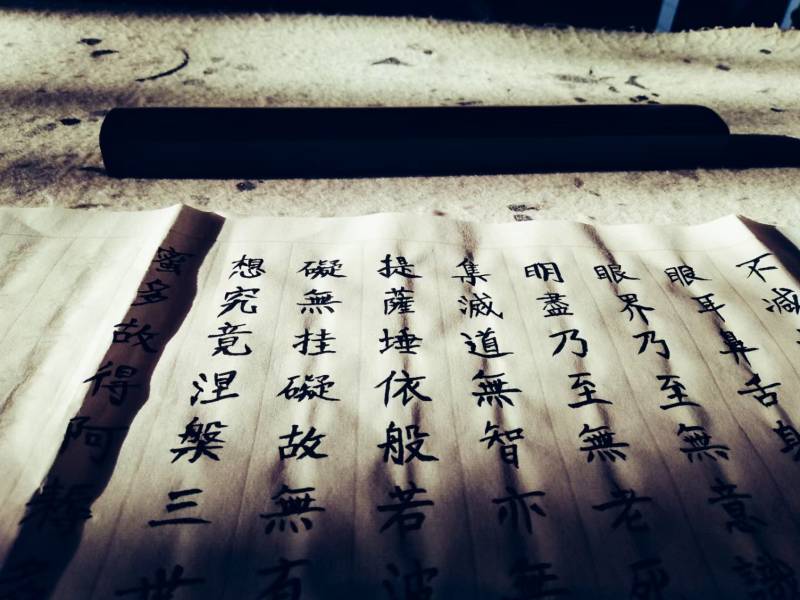 不減
眼耳鼻舌身
眼界乃至無意識
明盡乃至無老死
集滅道無智亦無
提薩埵依般若波
礙無挂礙故無有
想究竟涅槃三世
蜜多故得阿耨多